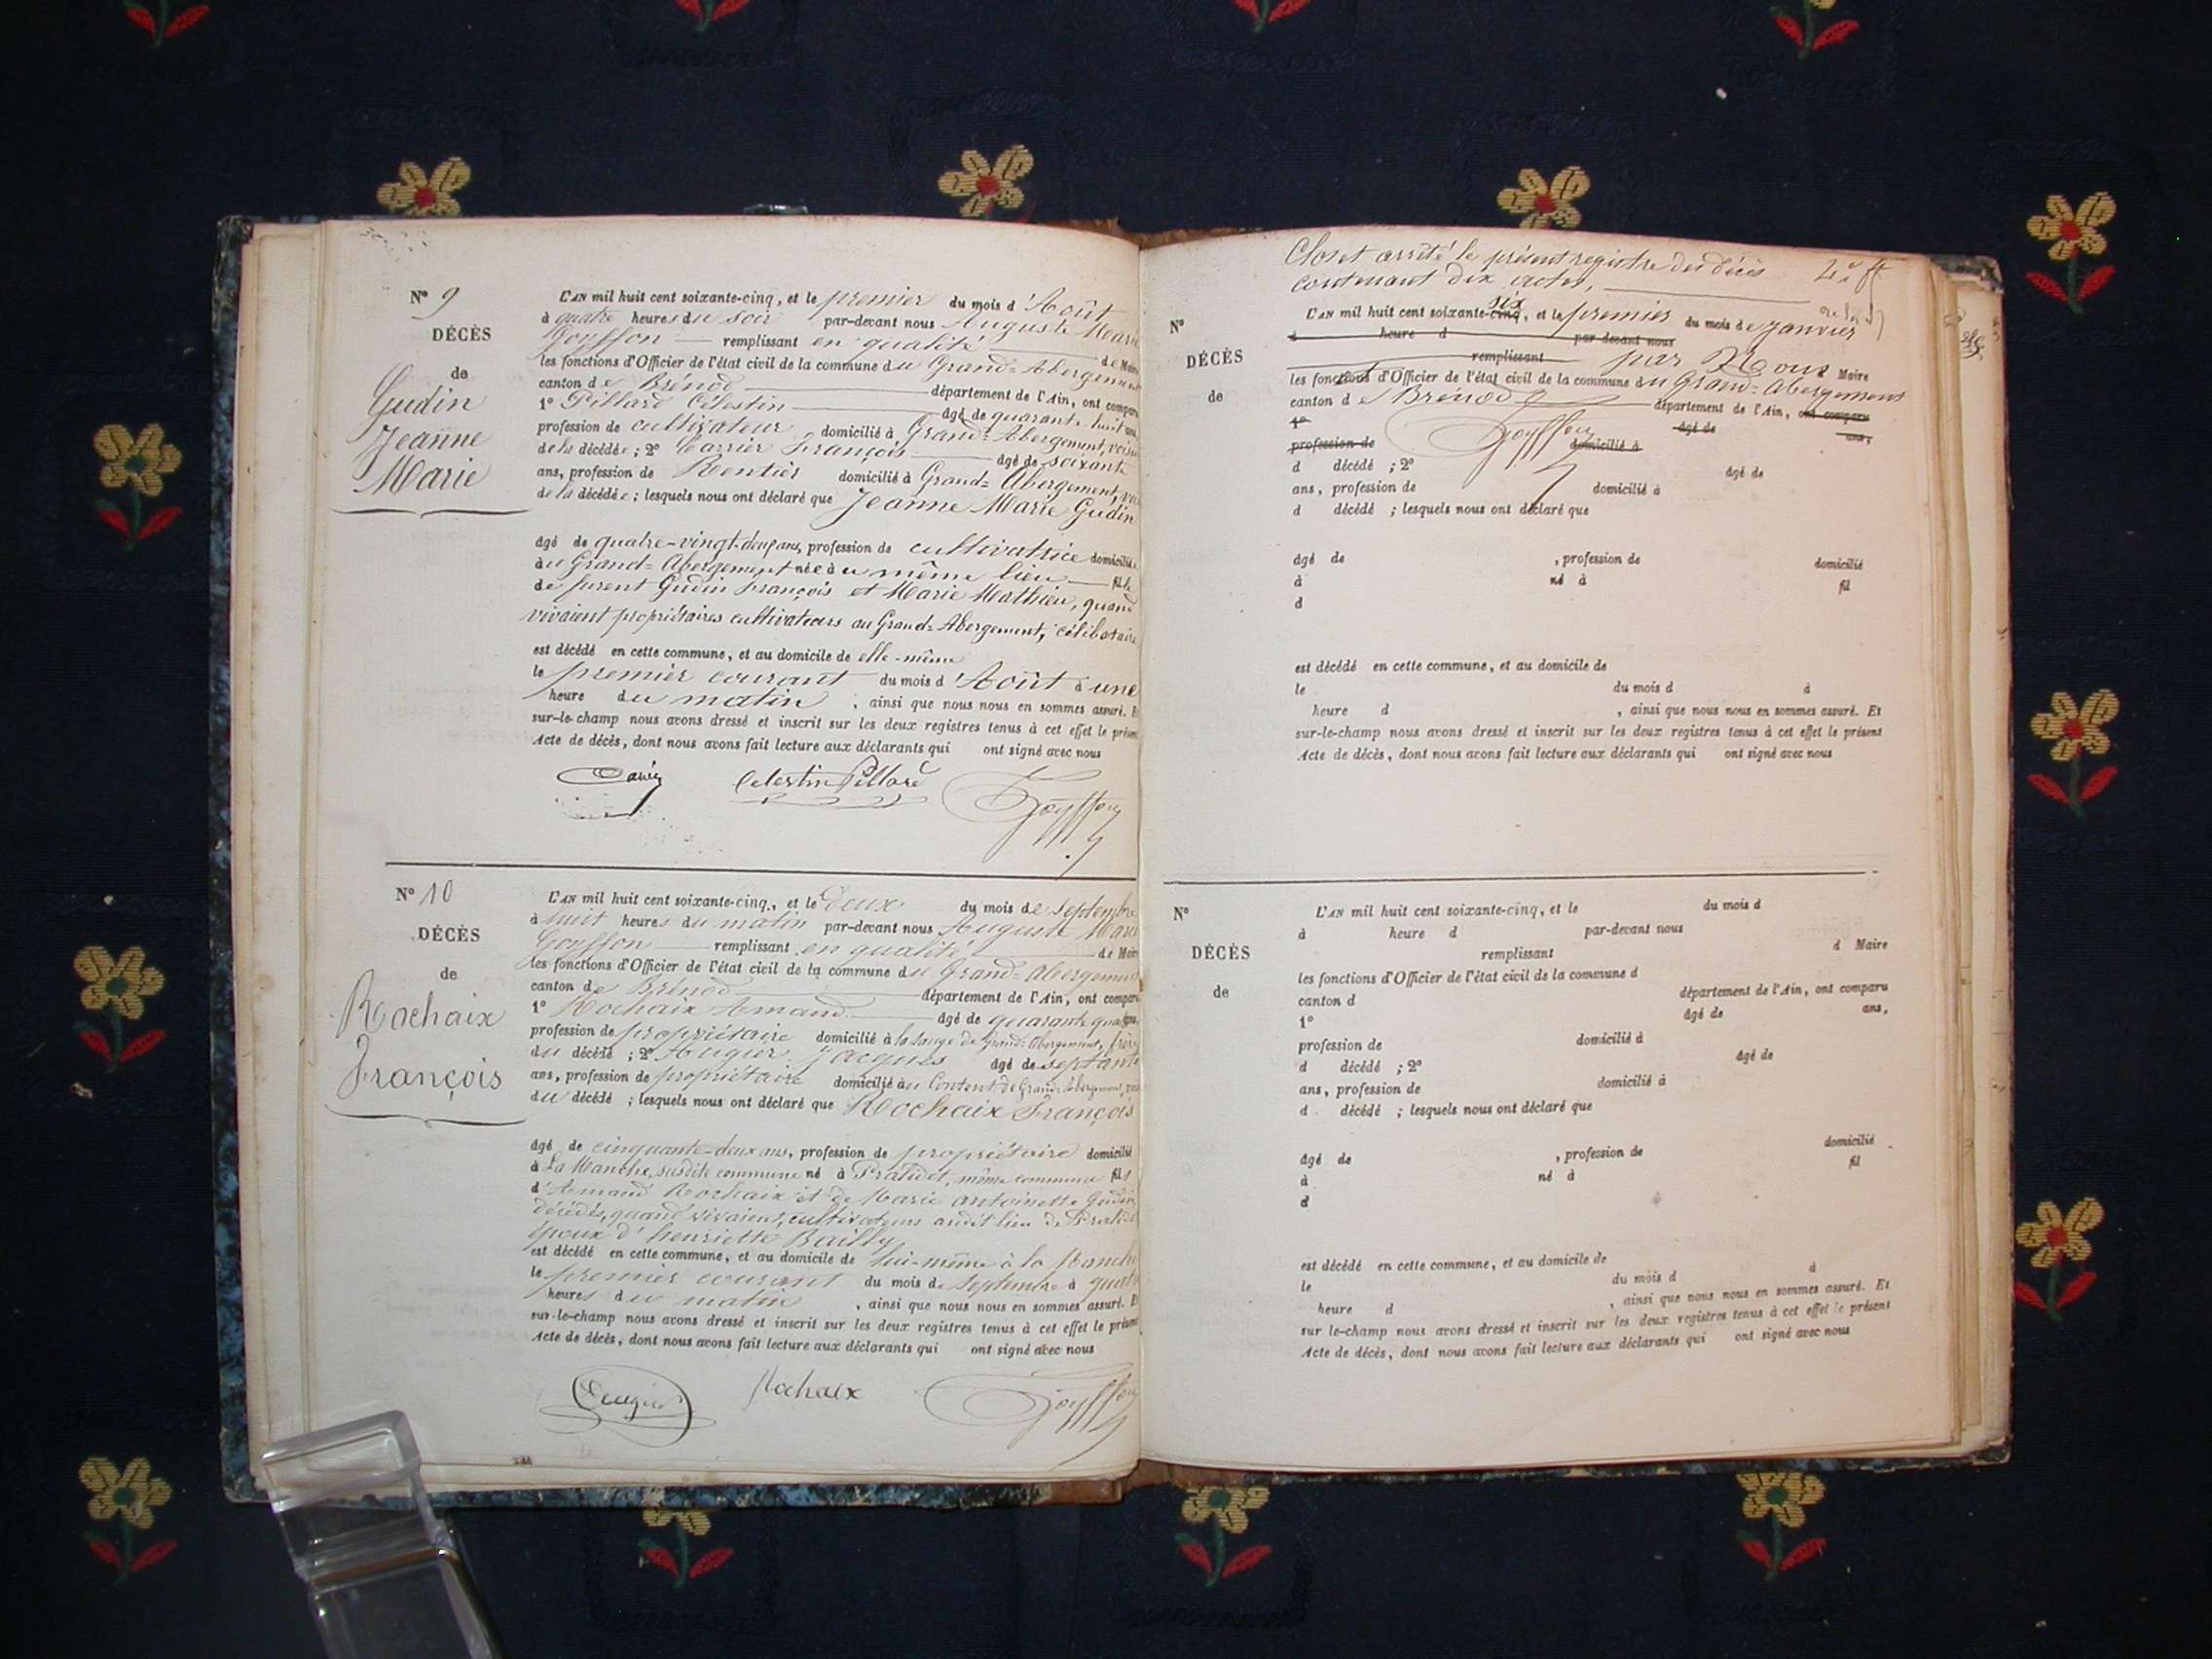 N° 9
DÉCÈS
de
Gudin
Jeanne
Marie
L'AN mil huit cent soixante-cinq, et le premier du mois d'Août
à quatre heures du soir par-devant nous Auguste Marie
Goyffon remplissant en qualité de Maire
les fonctions d'Officier de l'état civil de la commune du Grand-Abergement
canton de Brénod département de l'Ain, ont comparu
1° Pillard Célestin âgé de quarante-huit ans,
profession de cultivateur domicilié à Grand-Abergement, voisin
de la décédée ; 2° Carrier François âgé de soixante
ans, profession de Rentier domicilié à Grand-Abergement,
de la décédée ; lesquels nous ont déclaré que Jeanne Marie Gudin
âgé de quatre-vingt-deux ans, profession de cultivatrice domicilié
au Grand-Abergement née au même lieu fille
de furent Gudin François et Marie Mathieu, quand
vivaient propriétaires cultivateurs au Grand-Abergement, célibataire
est décédé en cette commune, et au domicile de elle-même
le premier courant du mois d'Août à une
heure du matin , ainsi que nous nous en sommes assuré. Et
sur-le-champ nous avons dressé et inscrit sur les deux registres tenus à cet effet le présent
Acte de décès, dont nous avons fait lecture aux déclarants qui ont signé avec nous
Celestin Pillard Goyffon
N° 10
DÉCÈS
de
Rochaix
François
L'AN mil huit cent soixante-cinq, et le deux du mois de Septembre
à huit heures du matin par-devant nous Auguste Marie
Goyffon remplissant en qualité de Maire
les fonctions d'Officier de l'état civil de la commune du Grand-Abergement
canton de Brénod département de l'Ain, ont comparu
1° Rochaix Amand âgé de quarante quatre ans,
profession de propriétaire domicilié à la de Grand-Abergement, frère
du décédé ; 2° Augier Jacques âgé de septante
ans, profession de propriétaire domicilié au Content de Grand-Abergement,
du décédé ; lesquels nous ont déclaré que Rochaix François
âgé de cinquante-deux ans, profession de propriétaire domicilié
à La Manche, susdite commune né à , même commune fils
d'Amand Rochaix et de Marie antoinette Gudin,
décédés, quand vivaient, cultivateurs audit lieu de
époux d'henriette Bailly
est décédé en cette commune, et au domicile de lui-même à la Manche
le premier courant du mois de Septembre à quatre
heures du matin , ainsi que nous nous en sommes assuré. Et
sur-le-champ nous avons dressé et inscrit sur les deux registres tenus à cet effet le présent
Acte de décès, dont nous avons fait lecture aux déclarants qui ont signé avec nous
Augier Rochaix Goyffon
Clos et arrêté le présent registre des décès
contenant dix actes,
N°
DÉCÈS
de
L'AN mil huit cent soixante-cinq six, et le premier du mois de janvier
à heure d par-devant nous
remplissant par Nous Maire
les fonctions d'Officier de l'état civil de la commune du Grand-Abergement
canton de Brénod département de l'Ain, ont comparu
1° âgé de ans,
profession de domicilié à
Goyffon
d décédé ; 2° âgé de
ans, profession de domicilié à
d décédé ; lesquels nous ont déclaré que
âgé de , profession de domicilié
à né à fil
d
est décédé en cette commune, et au domicile de
le du mois d à
heure d , ainsi que nous nous en sommes assuré. Et
sur-le-champ nous avons dressé et inscrit sur les deux registres tenus à cet effet le présent
Acte de décès, dont nous avons fait lecture aux déclarants qui ont signé avec nous
N°
DÉCÈS
de
L'AN mil huit cent soixante-cinq, et le du mois d
à heure d par-devant nous
remplissant d Maire
les fonctions d'Officier de l'état civil de la commune d
canton d département de l'Ain, ont comparu
1° âgé de ans,
profession de domicilié à
d décédé ; 2° âgé de
ans, profession de domicilié à
d décédé ; lesquels nous ont déclaré que
âgé de , profession de domicilié
à né à fil
d
est décédé en cette commune, et au domicile de
le du mois d à
heure d , ainsi que nous nous en sommes assuré. Et
sur le-champ nous avons dressé et inscrit sur les deux registres tenus à cet effet le présent
Acte de décès, dont nous avons fait lecture aux déclarants qui ont signé avec nous